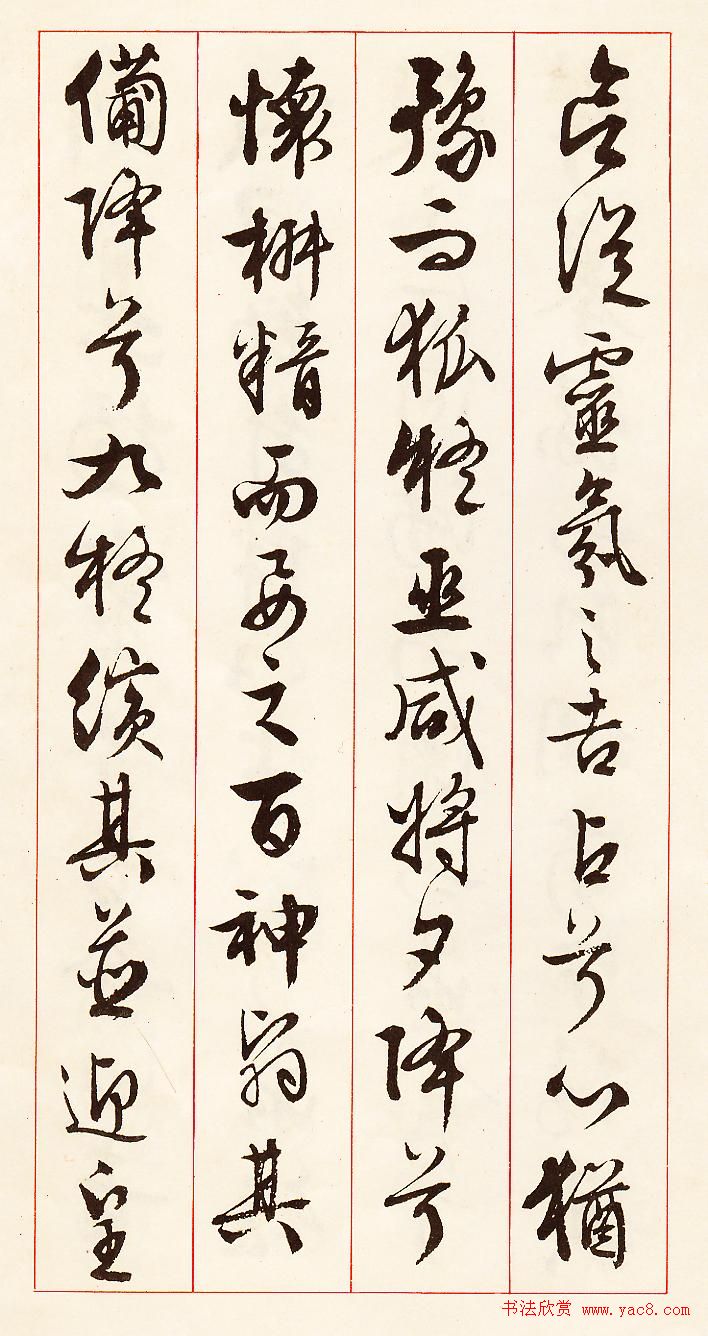 從靈氛之吉占兮心猶
豫而狐疑巫咸將夕降兮
懷椒糈而要之百神翳其
備降兮九疑繽其並迎皇
书法欣赏 www.yac8.com